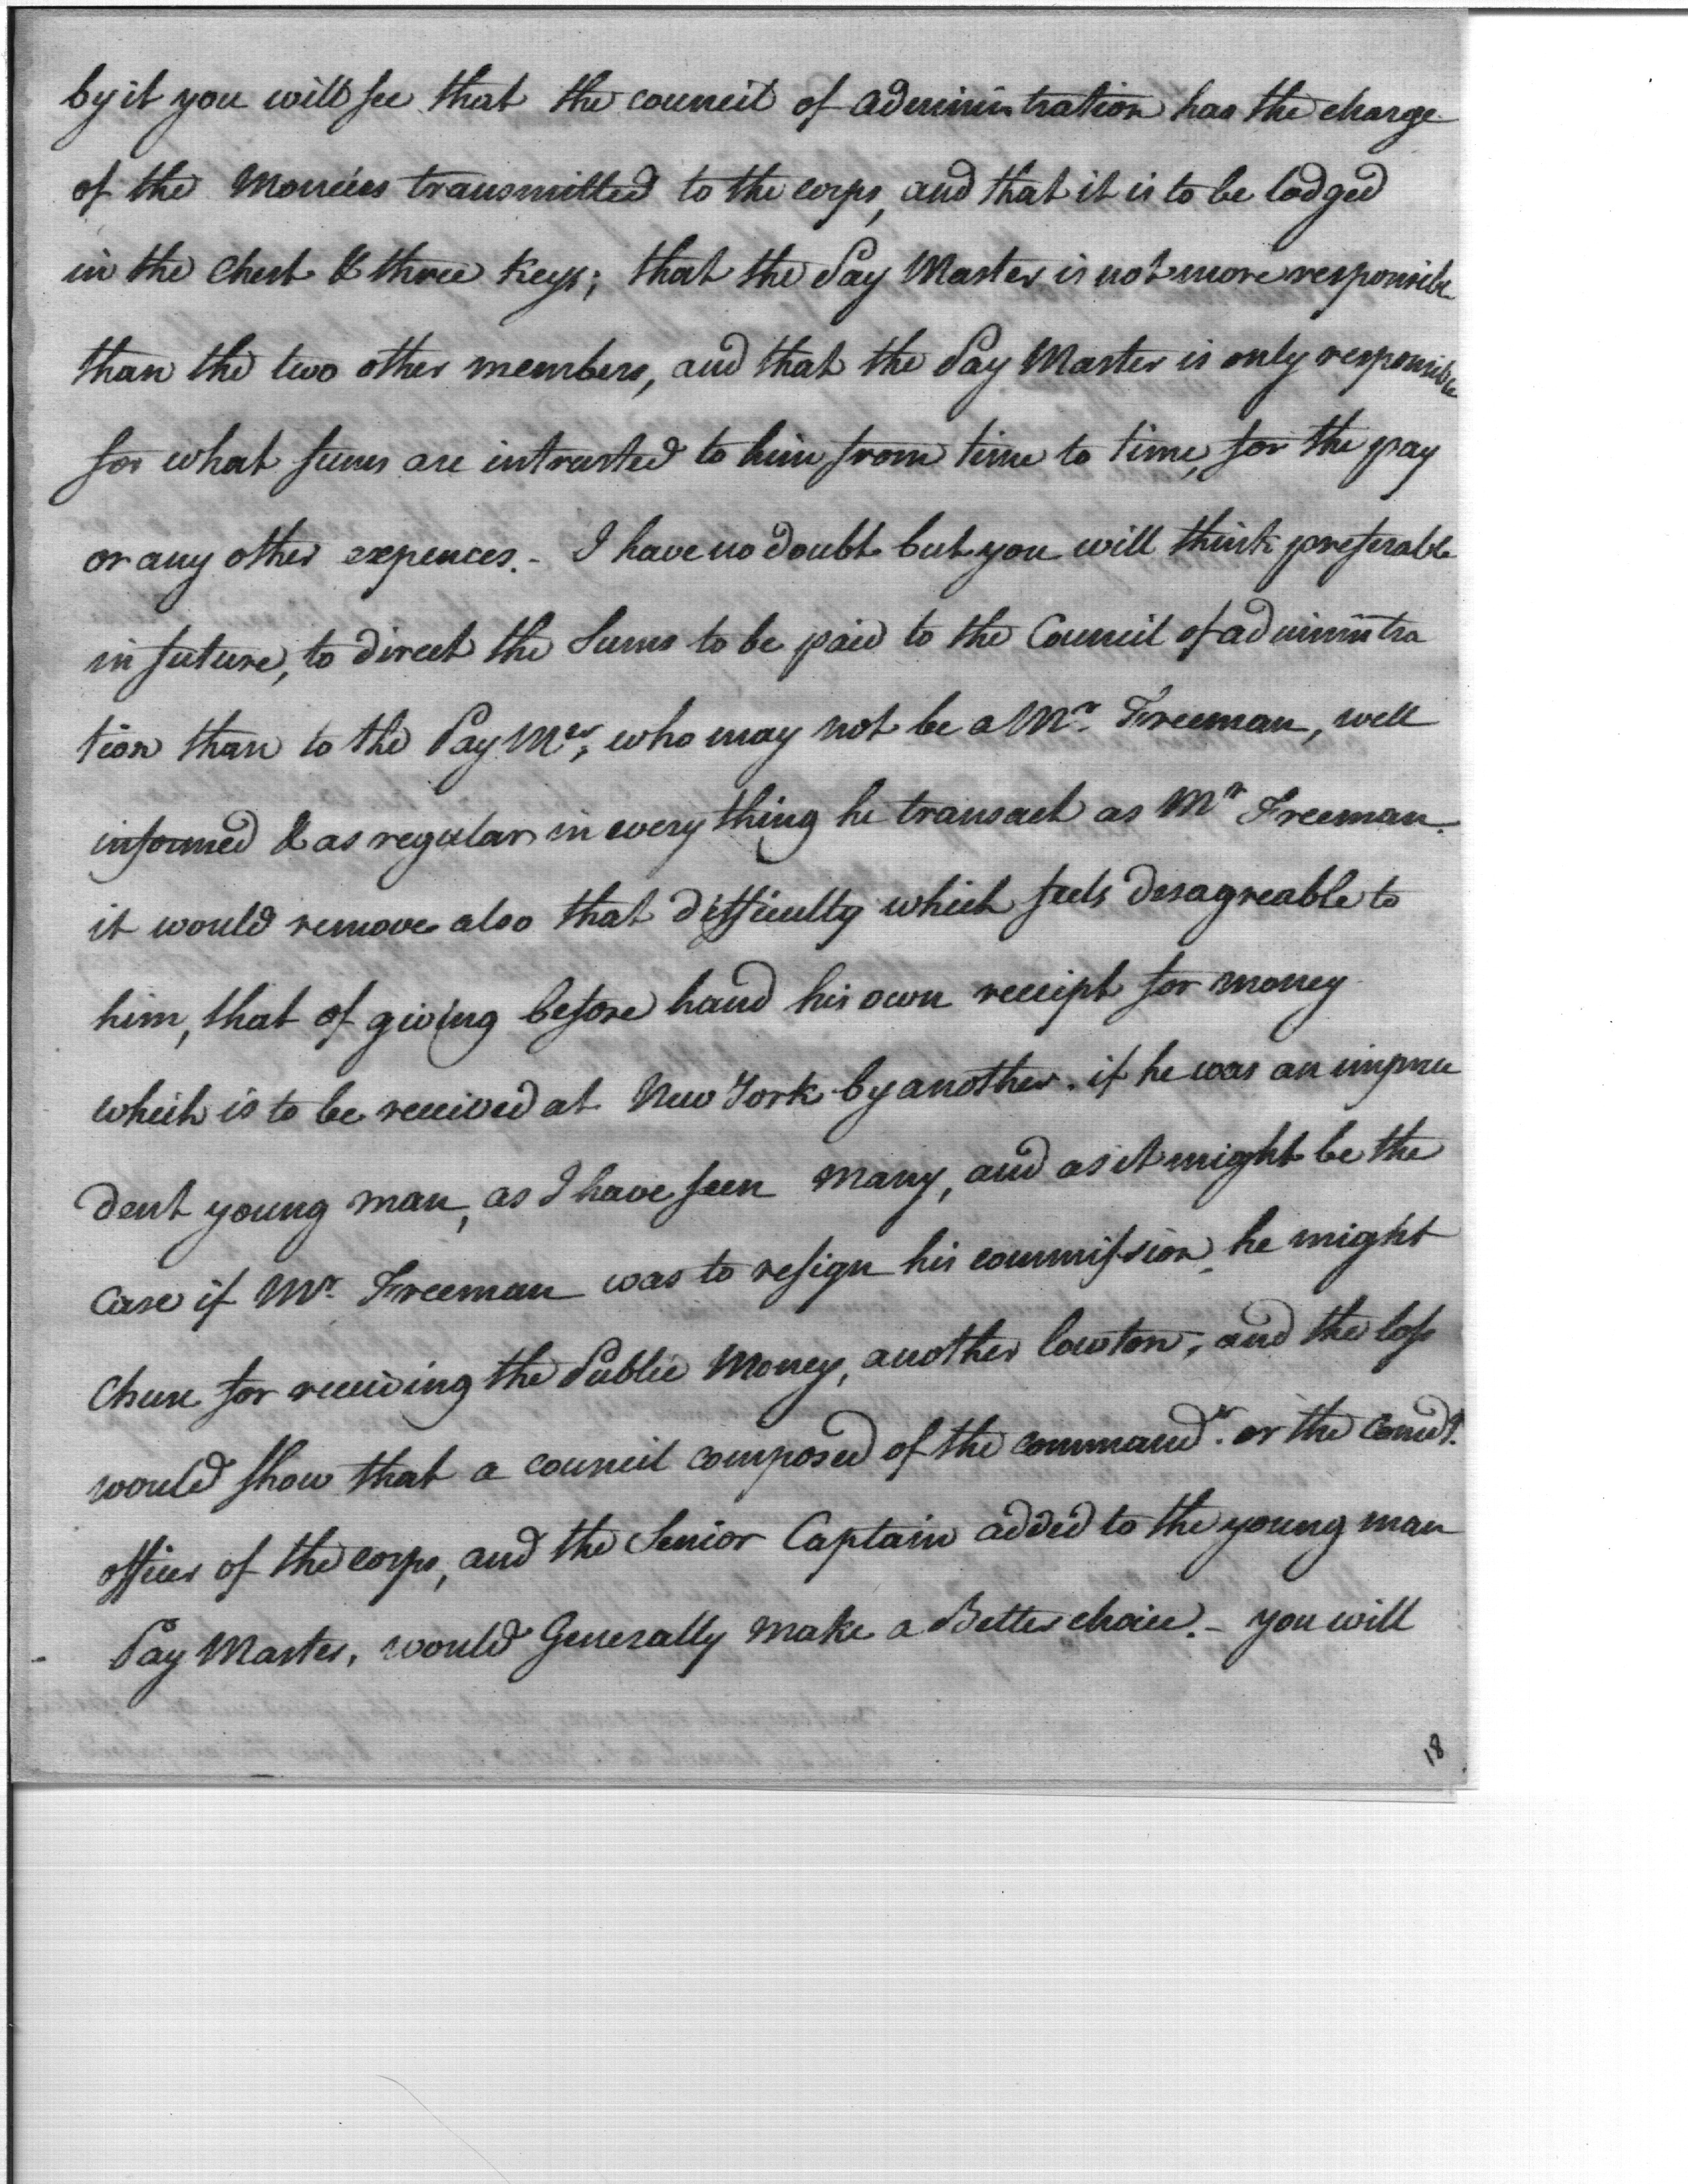 by it you will see that the council of administration has the charge
of the Monnies transmitted to the corps, and that it is to be lodged
in the Chest & three Keys; that the Pay Master is not more responsible
than the two other members, and that the Pay Master is only responsible
for what sums are intrusted to him from time to time, for the pay
or any other expences. - I have no doubt but you will think preferable
in future, to direct the Sums to be paid to the Council of administra
tion than to the Pay Mer, who may not be a Mr. Freeman, well
informed & as regular in every thing he transact as Mr Freeman.
it would remove also that difficulty which feels desagreable to
him, that of giving before hand his own receipt for money
which is to be received at New York by another. if he was an impru
dent young man, as I have seen many, and as it might be the
Case if Mr. Freeman was to resign his commission, he might
Chuse for receiving the Public Money, another lawton; and the loss
would show that a council composed of the command.r or the Comdt.
officer of the corps, and the Senior Captain added to the young man
Pay Master, would Generally make a Better choice. - you will
18